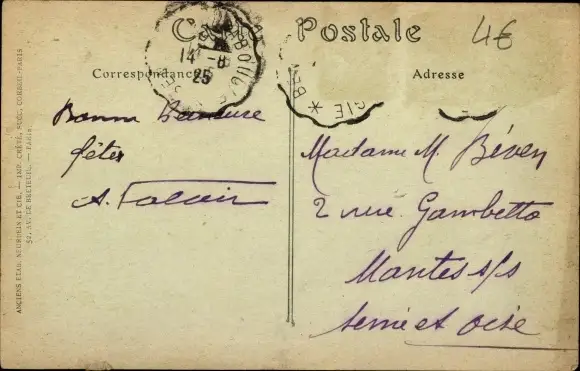 Carte Postale
4€
Correspondance
Adresse
14-8
25
Bonne Heureuse
fêtes
A. Falair
Madame M. Béven
2 rue Gambetta
Mantes s/s
Seine et Oise
ANCIENS ETAB. NEURDEIN ET CIE. — IMP. CRÉTÉ, SUCC. CORBEIL-PARIS
52, AV. DE BRETEUIL. — PARIS.